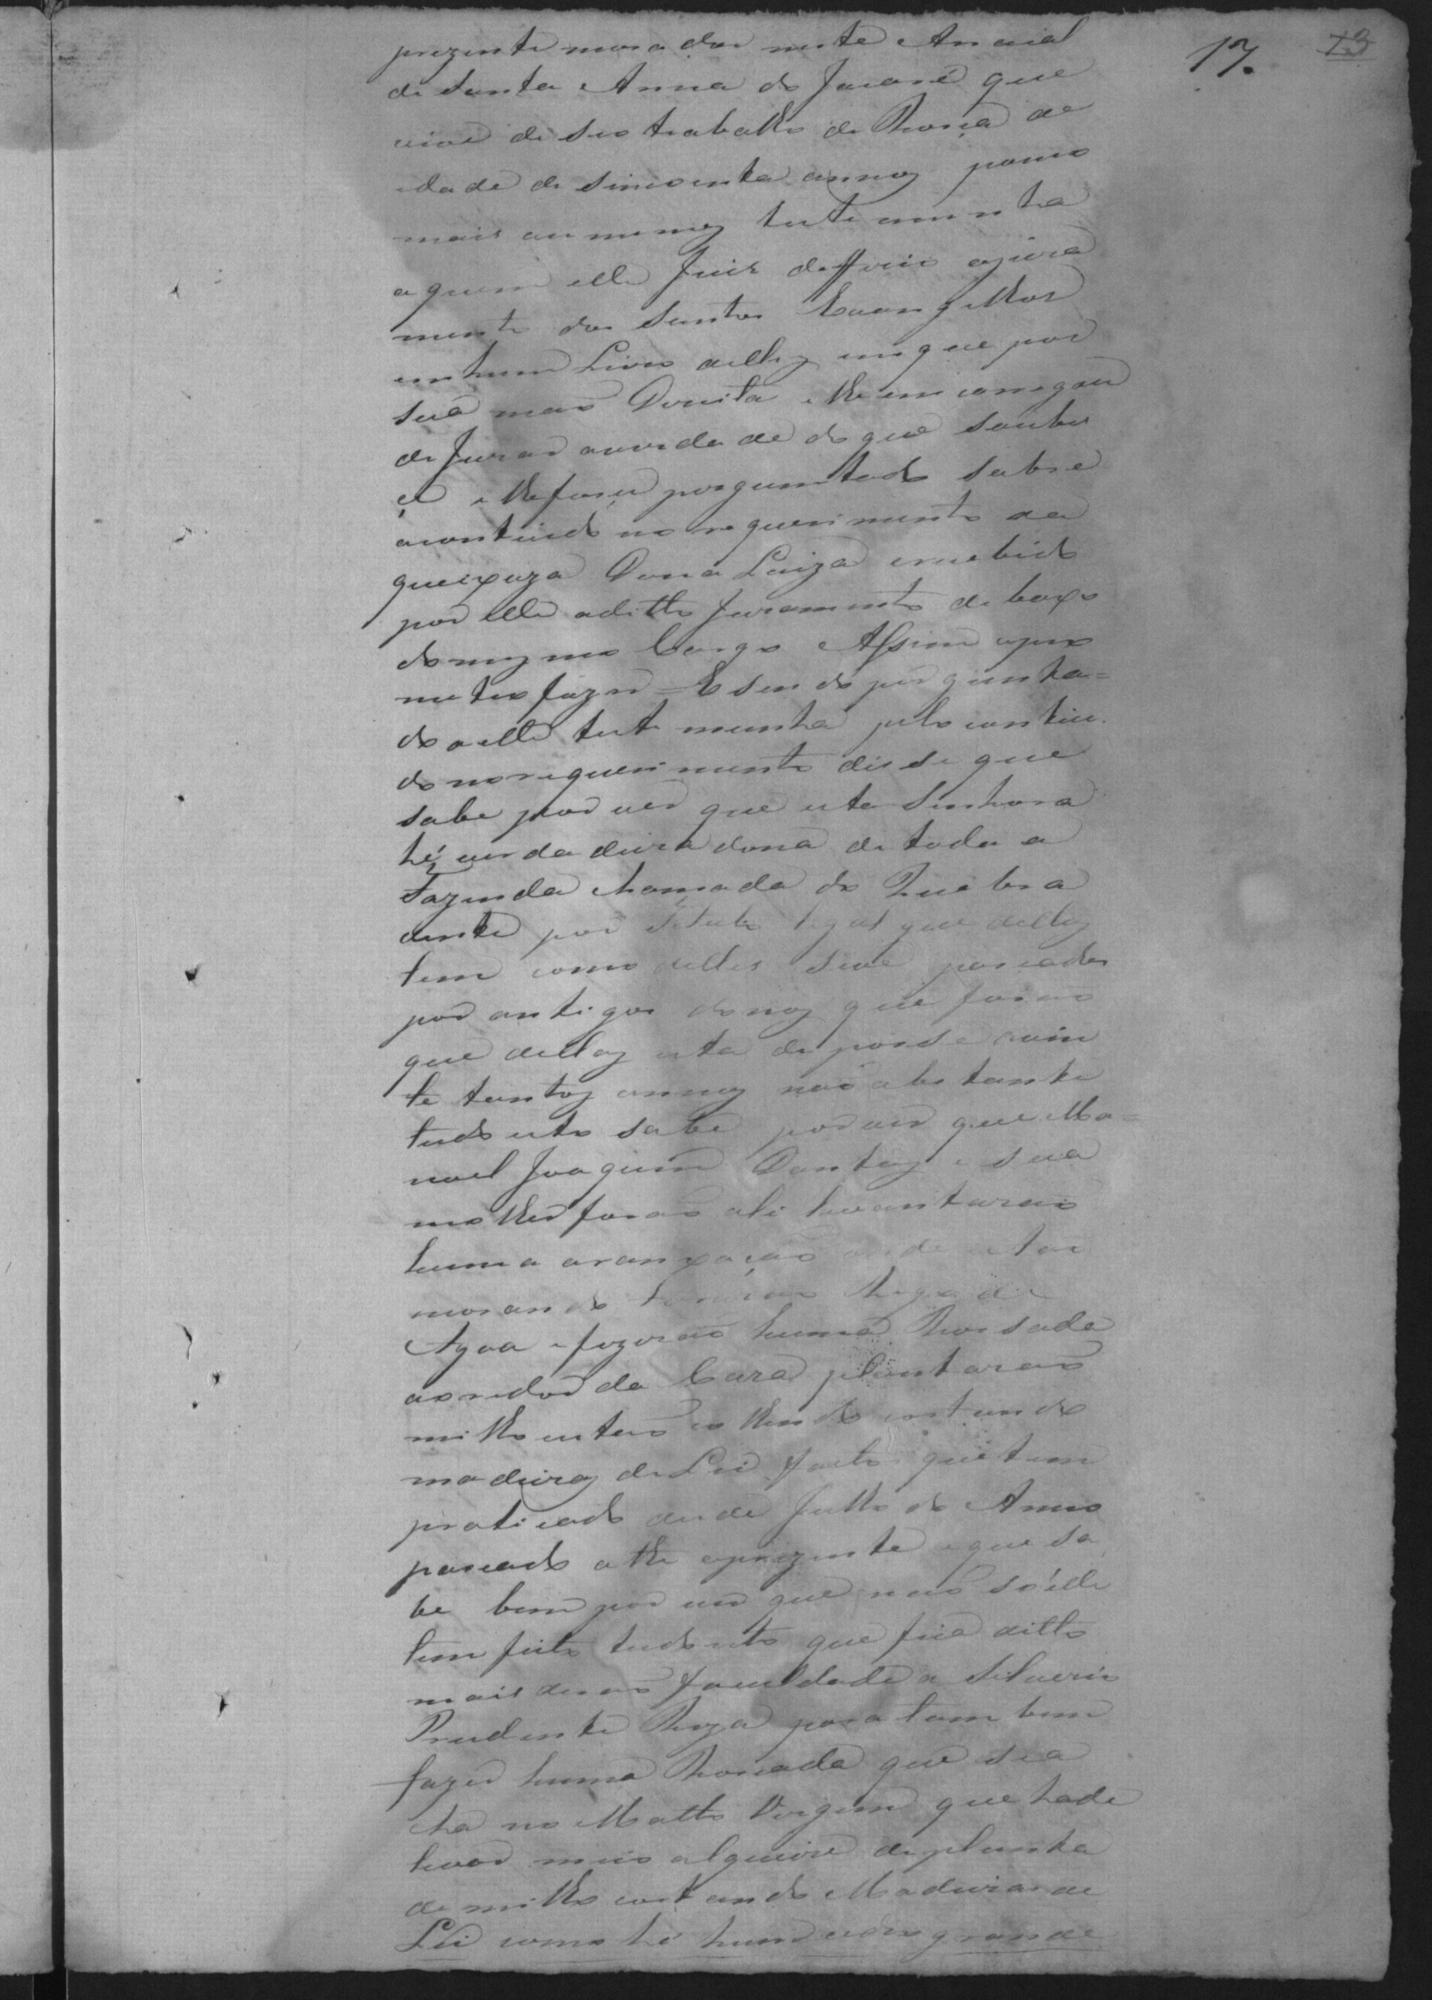 17. 13
prezente morador neste Arraial
de Santa Anna do Jacaré que
vive de seo trabalho de Roça de
idade de sincoenta annos pouco
mais ou menos testemunha
a quem elle Juis deffirio ojura
mento dos Santos Evangelhos
em hum Livro delles em que por
sua mão Direita e lhe emcarregou
de Jurar averdade do que soubes
ce e lhe fosse porguntado sobre
ocontiudo no requerimento da
queixoza Dona Luiza e recebido
por elle aditto Juramento debaxo
do mesmo Cargo Assim opro
meteo fazer = E sendo porgunta=
do a elle testemunha pelo contiu
do no requerimento disse que
sabe por ver que esta Senhora
hé verdadeira dona de toda a
Fazenda chamada do Quebra
dente por titulo legal que delles
tem como delles sive passados
por antigos donos que forão
que dellas esta de posse a vin
te tantos annos não obstante
tudo isto sabe por ver que Ma=
noel Joaquim Dantas e sua
molher forão ali levantarão
huma aranxação onde estão
morando tirarão Rego de
Agoa e fizerão huma Rossada
ao redor da Caza plantarão
milho estão colhendo cortando
madeiras de Lei factos que tem
praticado desde Julho do Anno
passado athe oprezente e que sa
be bem por ver que não só elle
tem feito tudo isto que fica ditto
mais derão faculdade a Silverio
Prudente Roza para tambem
fazer huma Rossada que se a
cha no Matto Virgem que hade
levar meio alqueire de planta
de milho cortando Madeiras de
Lei como hé hum cedro grande